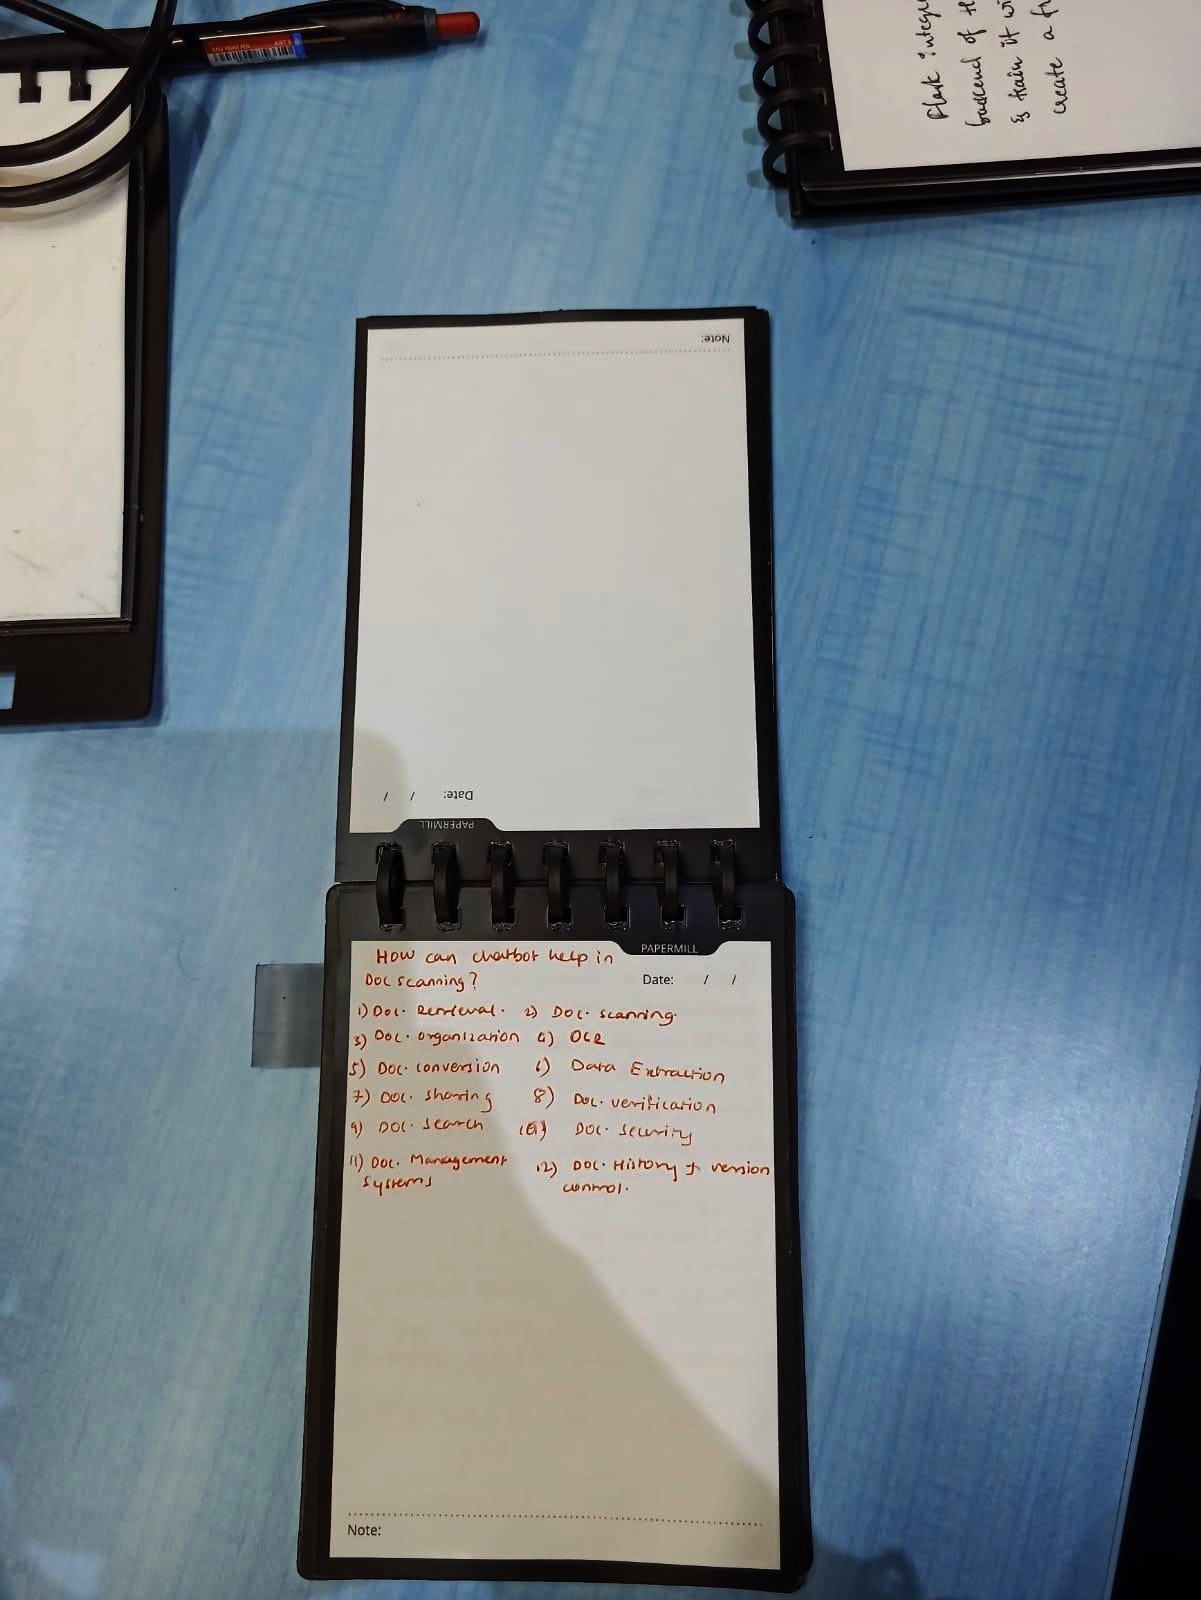 BALL POINT PEN
Flask integ
backend of th
& train it wi
create a fr
Note:
Date: / /
PAPERMILL
PAPERMILL
How can chatbot help in
Doc scanning?
Date: / /
1) Doc. Retrieval. 2) Doc. scanning.
3) Doc. organization 4) OCR
5) Doc. conversion 6) Data Extraction
7) Doc. sharing 8) Doc. verification
9) Doc. search 10) Doc. security
11) Doc. Management 12) Doc. History & version
systems control.
Note: